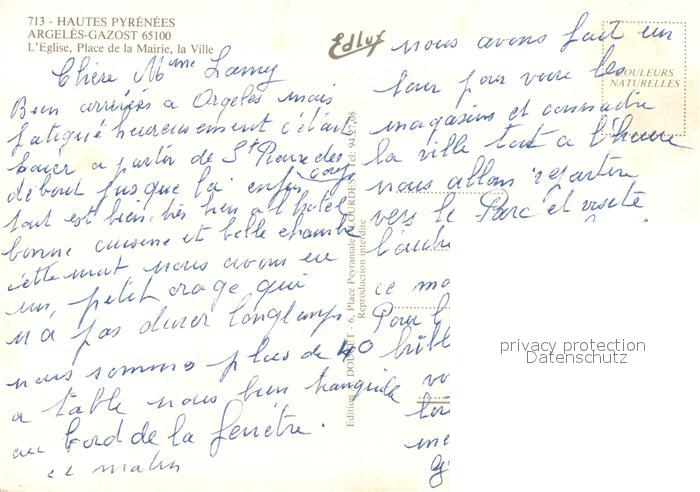 713 - HAUTES PYRÉNÉES
ARGELÈS-GAZOST 65100
L'Eglise, Place de la Mairie, la Ville
Edluf
COULEURS
NATURELLES
Edition DOUCET - 6, Place Peyramale LOURDES Tél. 94.27.08
Reproduction interdite
Chère Mme Lamy
Bien arrivées a Argelès mais
fatigué heureusement c'était
a partir de St Pierre des
corps
debout jusque la enfin
tout est bien, très bien a l'hotel
bonne cuisine et belle chambre
cette nuit nous avons eu
un, petit orage qui
n a pas durer longtemps
nous sommes plus de 40
a table nous bien tranquille
au bord de la fenêtre.
ce matin
nous avons fait un
tour pour voire les
magasins et connaitre
la ville tout a l'heure
nous allons repartire
vers le Parc et visite
l'autre
ce ma
Pour l
vo
privacy protection
Datenschutz